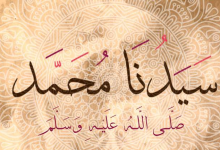 سَيِّدُنَا مُحَمَّد
صَلَّى اللَّهُ عَلَيْهِ وَسَلَّم